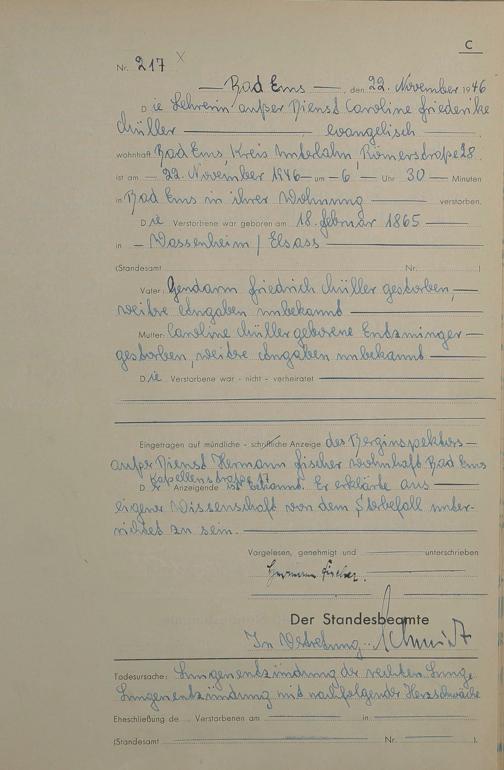 C
Nr. 217
Bad Ems, den 22. November 1946
Die Lehrerin außer Dienst Caroline Friederike
Müller evangelisch
wohnhaft Bad Ems, Kreis Unterlahn, Römerstraße 28
ist am 22. November 1946 um 6 Uhr 30 Minuten
in Bad Ems in ihrer Wohnung verstorben.
Die Verstorbene war geboren am 18. Februar 1865
in Wassenheim / Elsass
(Standesamt Nr. )
Vater: Gendarm Friedrich Müller gestorben,
weitere Angaben unbekannt
Mutter: Caroline Müller geborene Entzminger
gestorben, weitere Angaben unbekannt
Die Verstorbene war - nicht - verheiratet
Eingetragen auf mündliche - schriftliche Anzeige des Berginspektors
außer Dienst Hermann Fischer wohnhaft Bad Ems
Kapellenstraße 17
Der Anzeigende ist bekannt. Er erklärte aus
eigener Wissenschaft von dem Sterbefall unter-
richtet zu sein.
Vorgelesen, genehmigt und unterschrieben
Hermann Fischer.
Der Standesbeamte
In Vertretung: Schmidt
Todesursache: Lungenentzündung der rechten Lunge,
Lungenentzündung mit nachfolgender Herzschwäche
Eheschließung de Verstorbenen am in
(Standesamt Nr. )